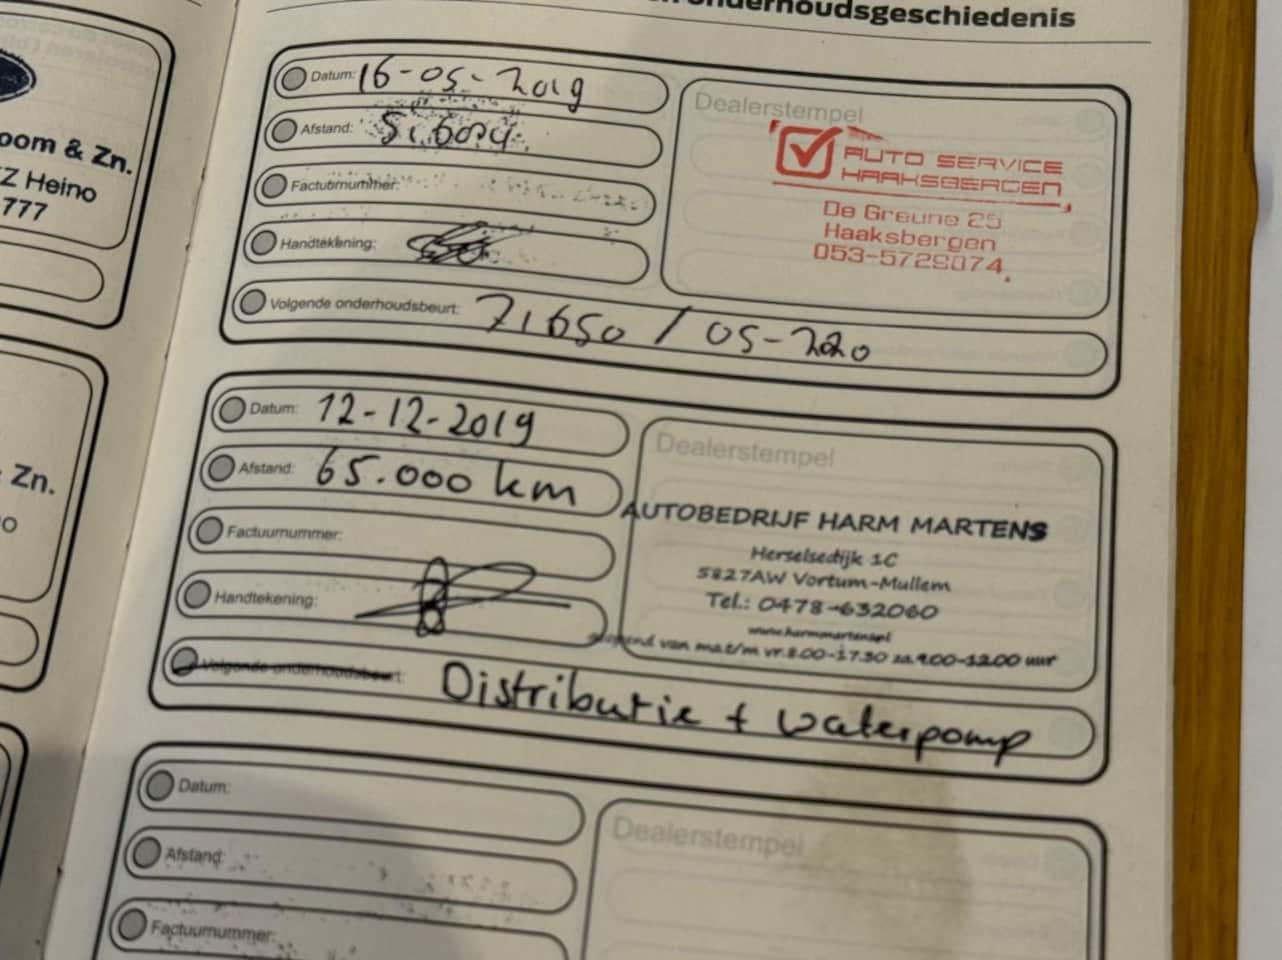 onderhoudsgeschiedenis
oom & Zn.
Z Heino
777
Datum: 16-05-2019
Afstand:
Factuurnummer:
Handtekening:
Volgende onderhoudsbeurt: 71650 / 05-2020
Dealerstempel
AUTO SERVICE
HAAKSBERGEN
De Greune 25
Haaksbergen
053-5729074
Zn.
Datum: 12-12-2019
Afstand: 65.000 km
Factuurnummer:
Handtekening:
Volgende onderhoudsbeurt: Distributie + waterpomp
Dealerstempel
AUTOBEDRIJF HARM MARTENS
Herselsedijk 1C
5827AW Vortum-Mullem
Tel.: 0478-632060
www.harmmartens.nl
geopend van ma t/m vr. 8.00-17.30 za 9.00-12.00 uur
Datum:
Afstand:
Factuurnummer:
Dealerstempel